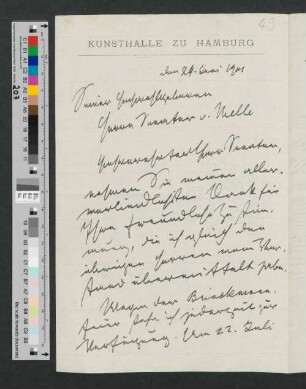 49
KUNSTHALLE ZU HAMBURG
den 24. Juni 1901
Seiner Hochwohlgeboren
Herrn Senator v. Melle
Hochverehrter Herr Senator,
nehmen Sie meinen aller
verbindlichsten Dank für
Ihre freundliche Zustim
mung, die ich auch den
übrigen Herren vom Vor
stand übermittelt habe.
Wegen der
stehe ich jederzeit zur
Verfügung. Am 22. Juli